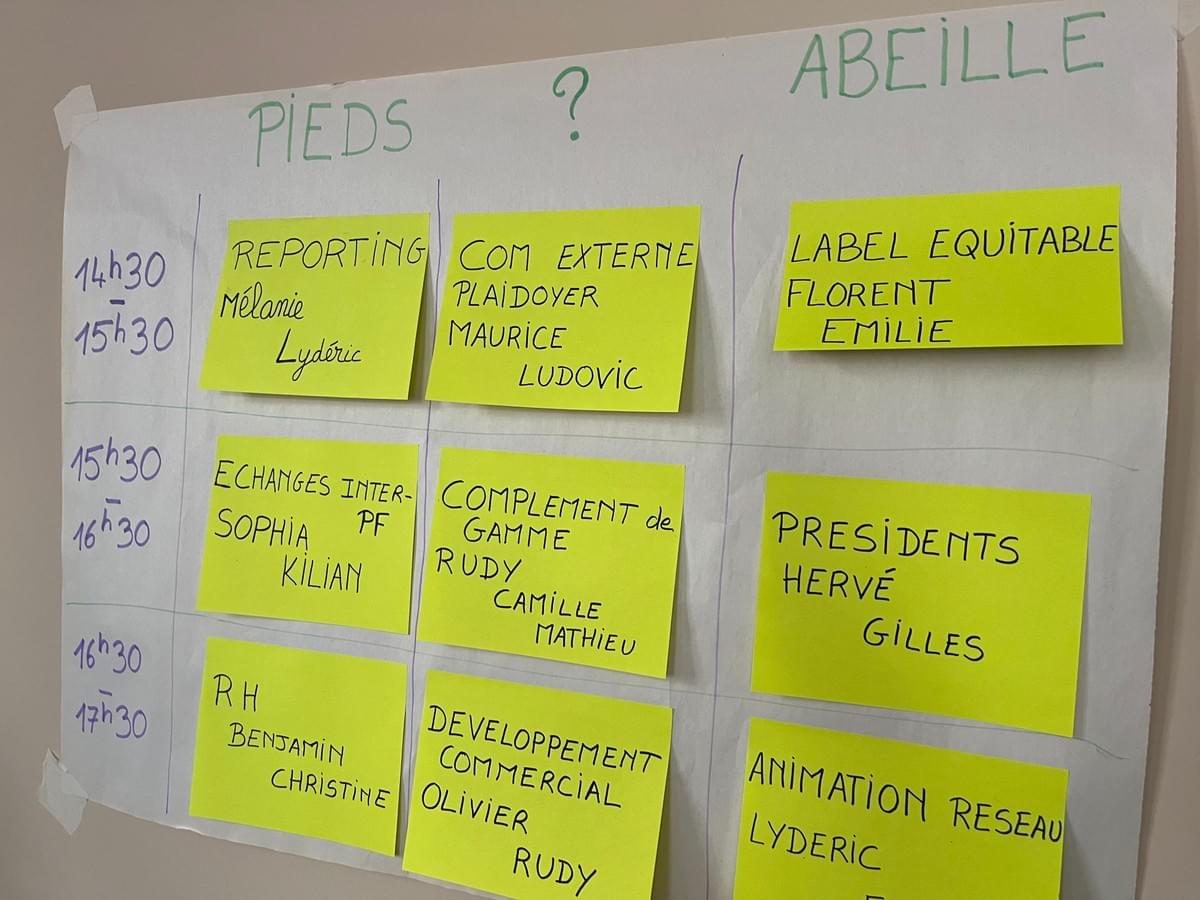 PIEDS
?
ABEILLE
14h30
-
15h30
REPORTING
Mélanie
Lydéric
COM EXTERNE
PLAIDOYER
MAURICE
LUDOVIC
LABEL EQUITABLE
FLORENT
EMILIE
15h30
-
16h30
ECHANGES INTER-
PF
SOPHIA
KILIAN
COMPLEMENT de
GAMME
RUDY
CAMILLE
MATHIEU
PRESIDENTS
HERVÉ
GILLES
16h30
-
17h30
RH
BENJAMIN
CHRISTINE
DEVELOPPEMENT
COMMERCIAL
OLIVIER
RUDY
ANIMATION RESEAU
LYDERIC